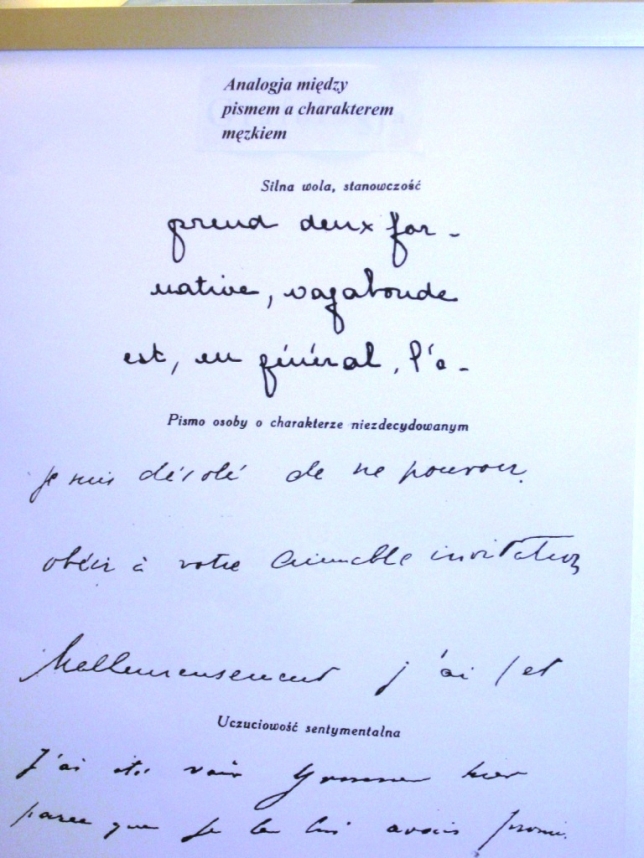 Analogja między
pismem a charakterem
męzkiem
Silna wola, stanowczość
prend deux for-
native, vagabonde
est, en général, l'a-
Pismo osoby o charakterze niezdecydowanym
je suis désolé de ne pouvoir
obéir à votre aimable invitation
Malheureusement j'ai
Uczuciowość sentymentalna
J'ai été voir Yvonne hier
parce que je le lui avais promis.